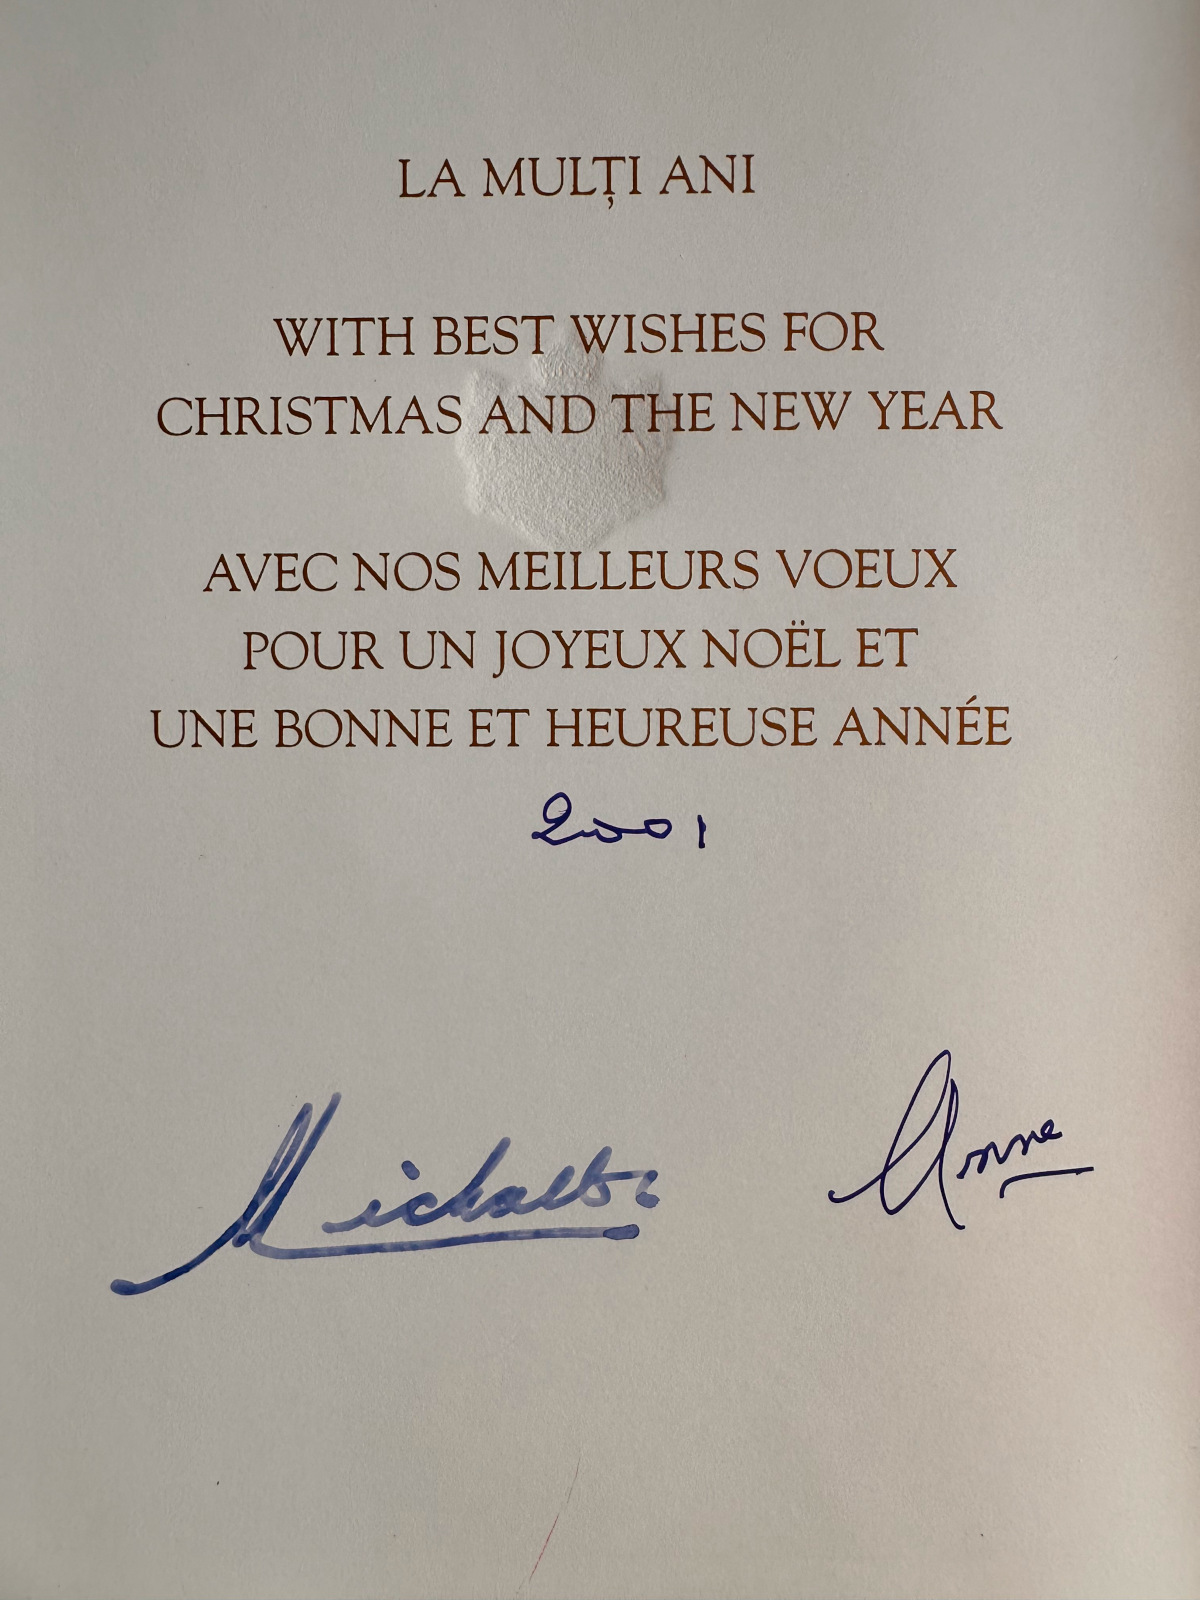 LA MULȚI ANI
WITH BEST WISHES FOR
CHRISTMAS AND THE NEW YEAR
AVEC NOS MEILLEURS VOEUX
POUR UN JOYEUX NOËL ET
UNE BONNE ET HEUREUSE ANNÉE
2001
Anne